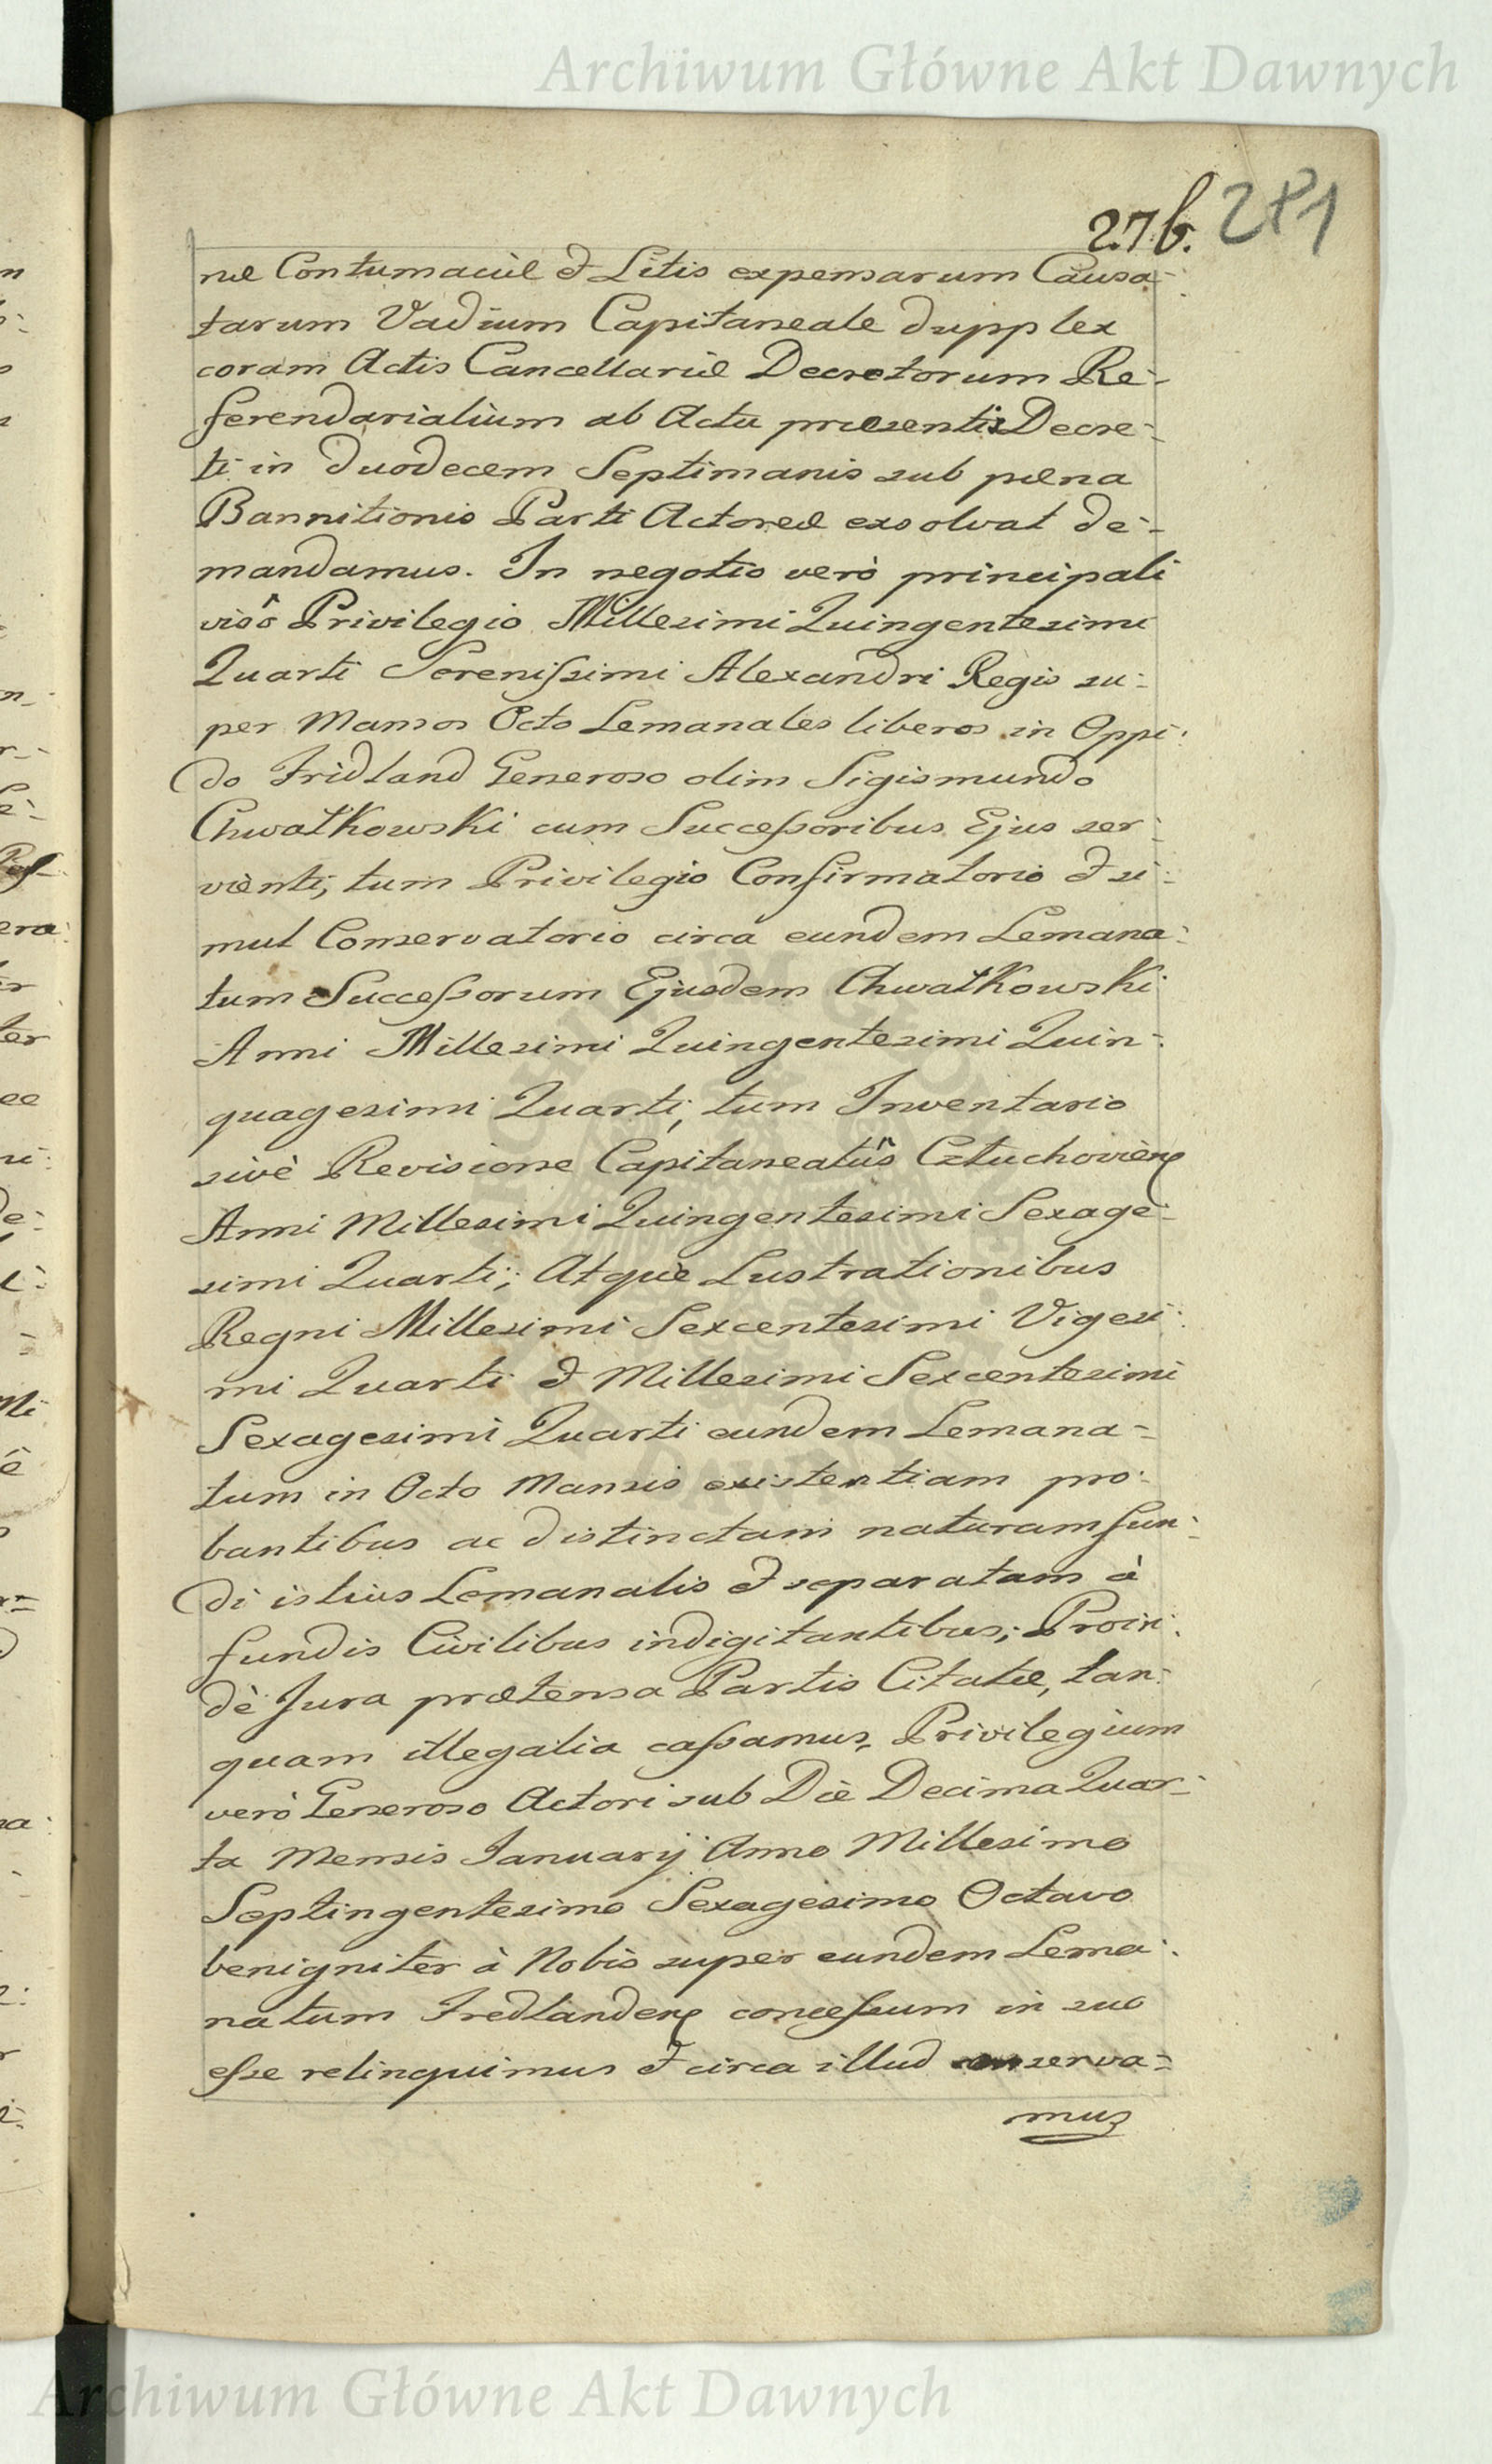 Archiwum Główne Akt Dawnych
276. 281
næ Contumaciæ & Litis expensarum Causa-
tarum Vadium Capitaneale dupplex
coram Actis Cancellariæ Decretorum Re-
ferendarialium ab Actu præsentis Decre-
ti in duodecem Septimanis sub pæna
Bannitionis Parti Actoreæ exsolvat de-
mandamus. In negotio verò principali
visô Privilegio Millesimi Quingentesimi
Quarti Serenissimi Alexandri Regis su-
per Mansos Octo Lemanales liberos in Oppi-
do Fridland Generoso olim Sigismundo
Chwałkowski cum Successoribus Ejus ser-
vienti, tum Privilegio Confirmatorio & si-
mul Conservatorio circa eundem Lemana-
tum Successorum Ejusdem Chwałkowski
Anni Millesimi Quingentesimi Quin-
quagesimi Quarti, tum Inventario
sivè Revisione Capitaneatûs Człuchovien
Anni Millesimi Quingentesimi Sexage-
simi Quarti; Atquè Lustrationibus
Regni Millesimi Sexcentesimi Vigesi-
mi Quarti & Millesimi Sexcentesimi
Sexagesimi Quarti eundem Lemana-
tum in Octo Mansis existentiam pro-
bantibus ac distinctam naturam fun-
di istius Lemanalis & separatam à
fundis Civilibus indigitantibus; Proin-
dè Jura prætensa Partis Citatæ, tan-
quam illegalia cassamus, Privilegium
verò Generoso Actori sub Die Decima Quar-
ta Mensis Januarij Anno Millesimo
Septingentesimo Sexagesimo Octavo
benigniter à Nobis super eundem Lema-
natum Fredlanden concessum in suo
esse relinquimus & circa illud conserva-
mus
Archiwum Główne Akt Dawnych